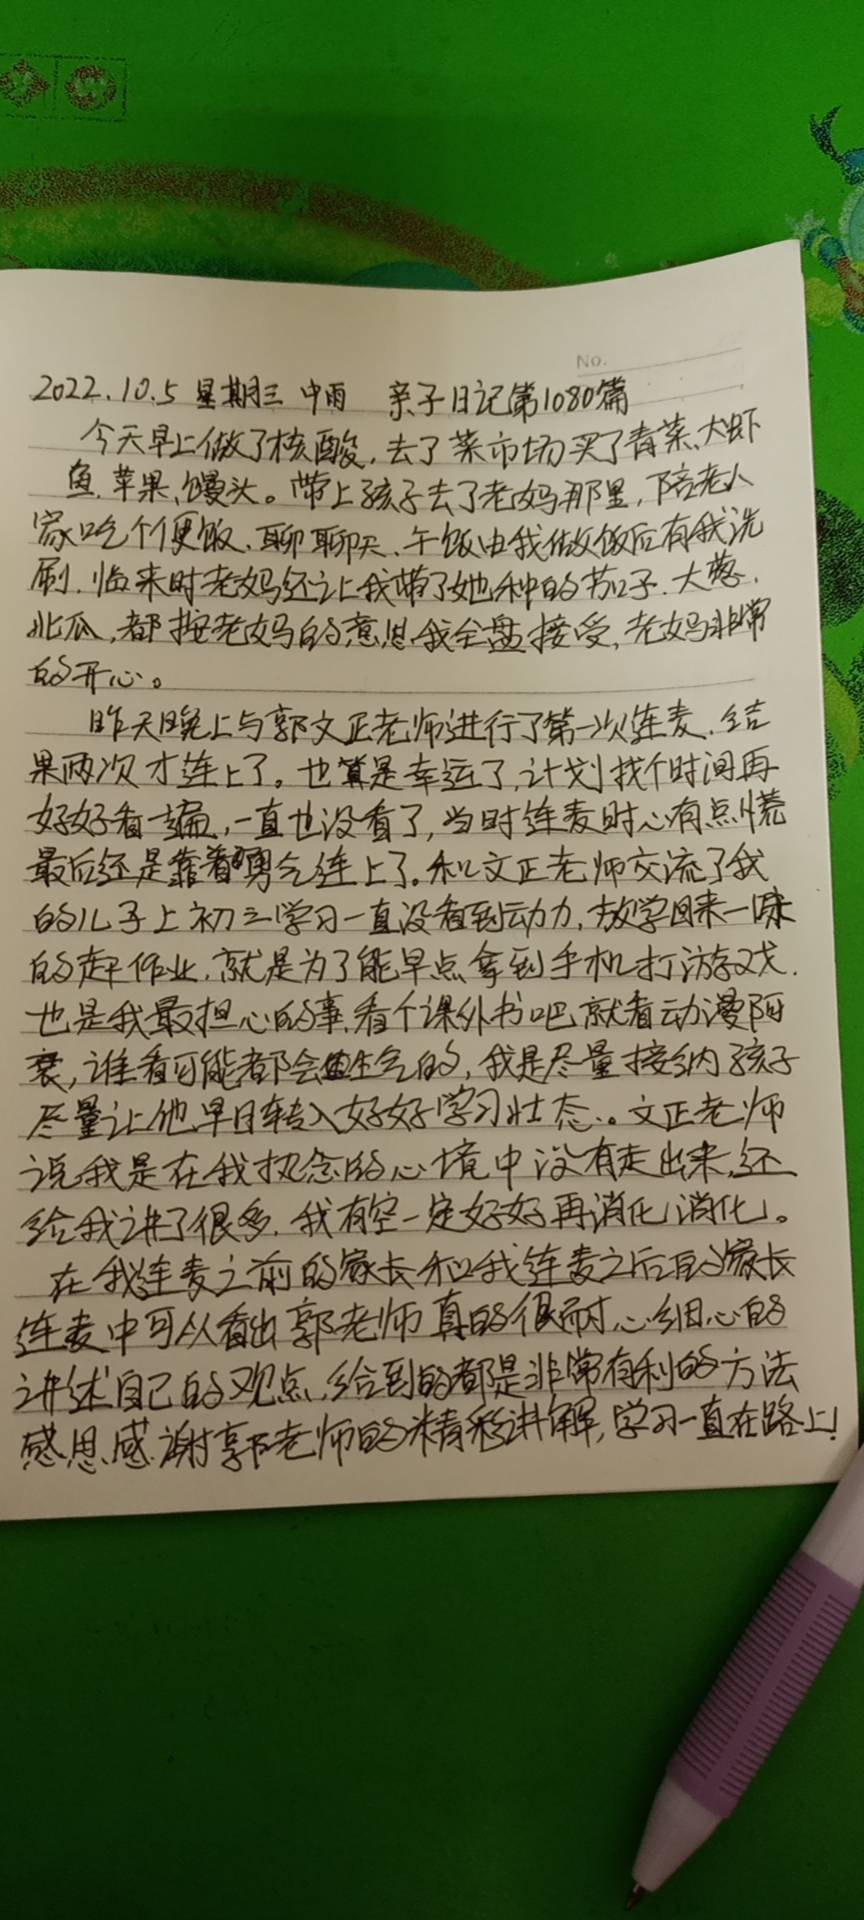 No.
2022.10.5 星期三 中雨 亲子日记第1080篇
今天早上做了核酸,去了菜市场买了青菜、大虾
鱼、苹果、馒头。带上孩子去了老妈那里,陪老人
家吃个便饭、聊聊天、午饭由我做饭后有我洗
刷.临来时老妈还让我带了她种的茄子.大葱.
北瓜,都按老妈的意思我全盘接受,老妈非常
的开心。
昨天晚上与郭文正老师进行了第一次连麦.结
果两次才连上了。也算是幸运了,计划找个时间再
好好看一遍,一直也没看了,当时连麦时心有点慌
最后还是靠着勇气连上了。和文正老师交流了我
的儿子上初三学习一直没看到动力,放学回来一味
的赶作业,就是为了能早点拿到手机打游戏.
也是我最担心的事,看个课外书吧就看动漫阿
衰,谁看可能都会生气的,我是尽量接纳孩子
尽量让他早日转入好好学习状态。文正老师
说我是在我执念的心境中没有走出来,还
给我讲了很多.我有空一定好好再消化消化。
在我连麦之前的家长和我连麦之后的家长
连麦中可从看出郭老师真的很耐心细心的
讲述自己的观点,给到的都是非常有利的方法
感恩感谢郭老师的精彩讲解,学习一直在路上!